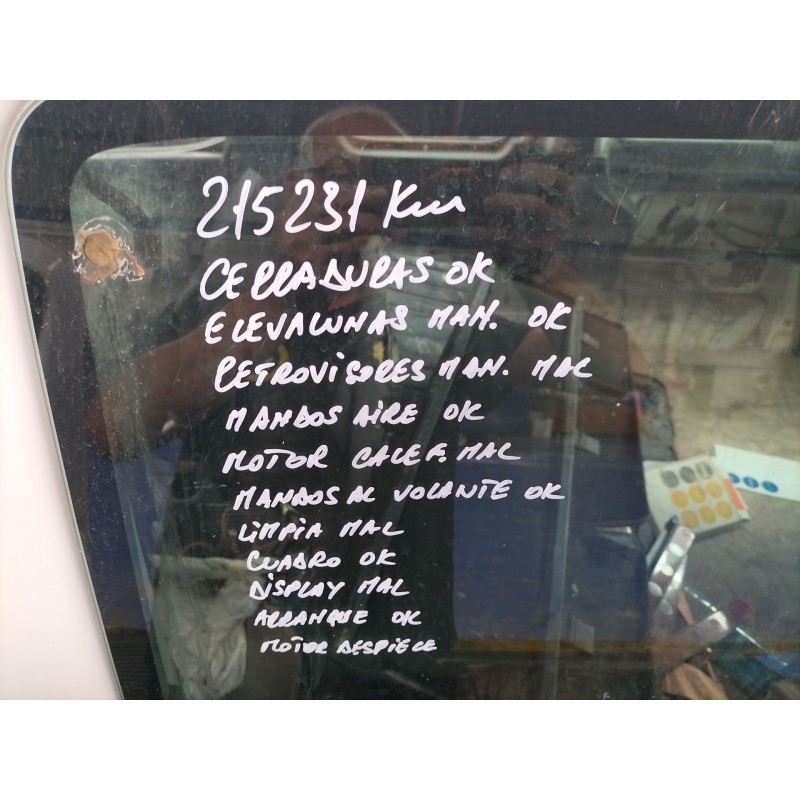 215231 Km
CERRADURAS OK
ELEVALUNAS MAN. OK
RETROVISORES MAN. MAL
MANDOS AIRE OK
MOTOR CALEF. MAL
MANDOS AL VOLANTE OK
LIMPIA MAL
CUADRO OK
DISPLAY MAL
ARRANQUE OK
MOTOR DESPIECE